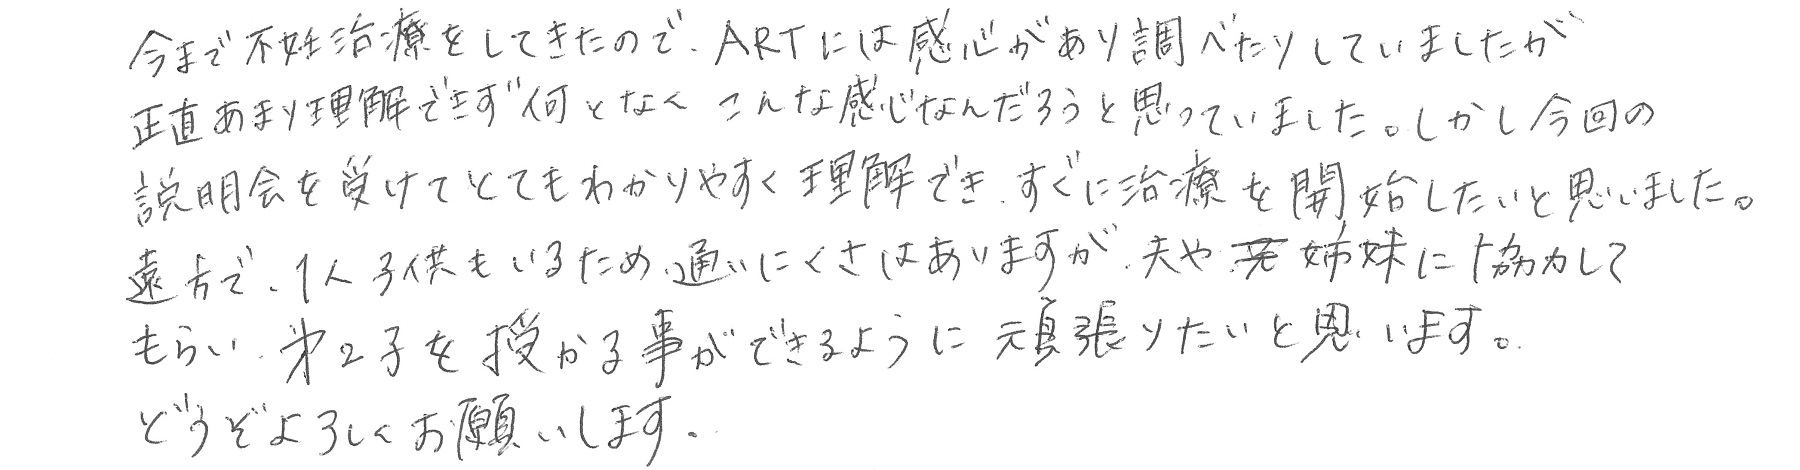 今まで不妊治療をしてきたので、ARTには感心があり調べたりしていましたが
正直あまり理解できず何となく こんな感じなんだろうと思っていました。しかし今回の
説明会を受けてとてもわかりやすく理解でき、すぐに治療を開始したいと思いました。
遠方で、1人子供もいるため、通いにくさはありますが、夫や 姉妹に協力して
もらい、第2子を授かる事ができるように 頑張りたいと思います。
どうぞよろしくお願いします。